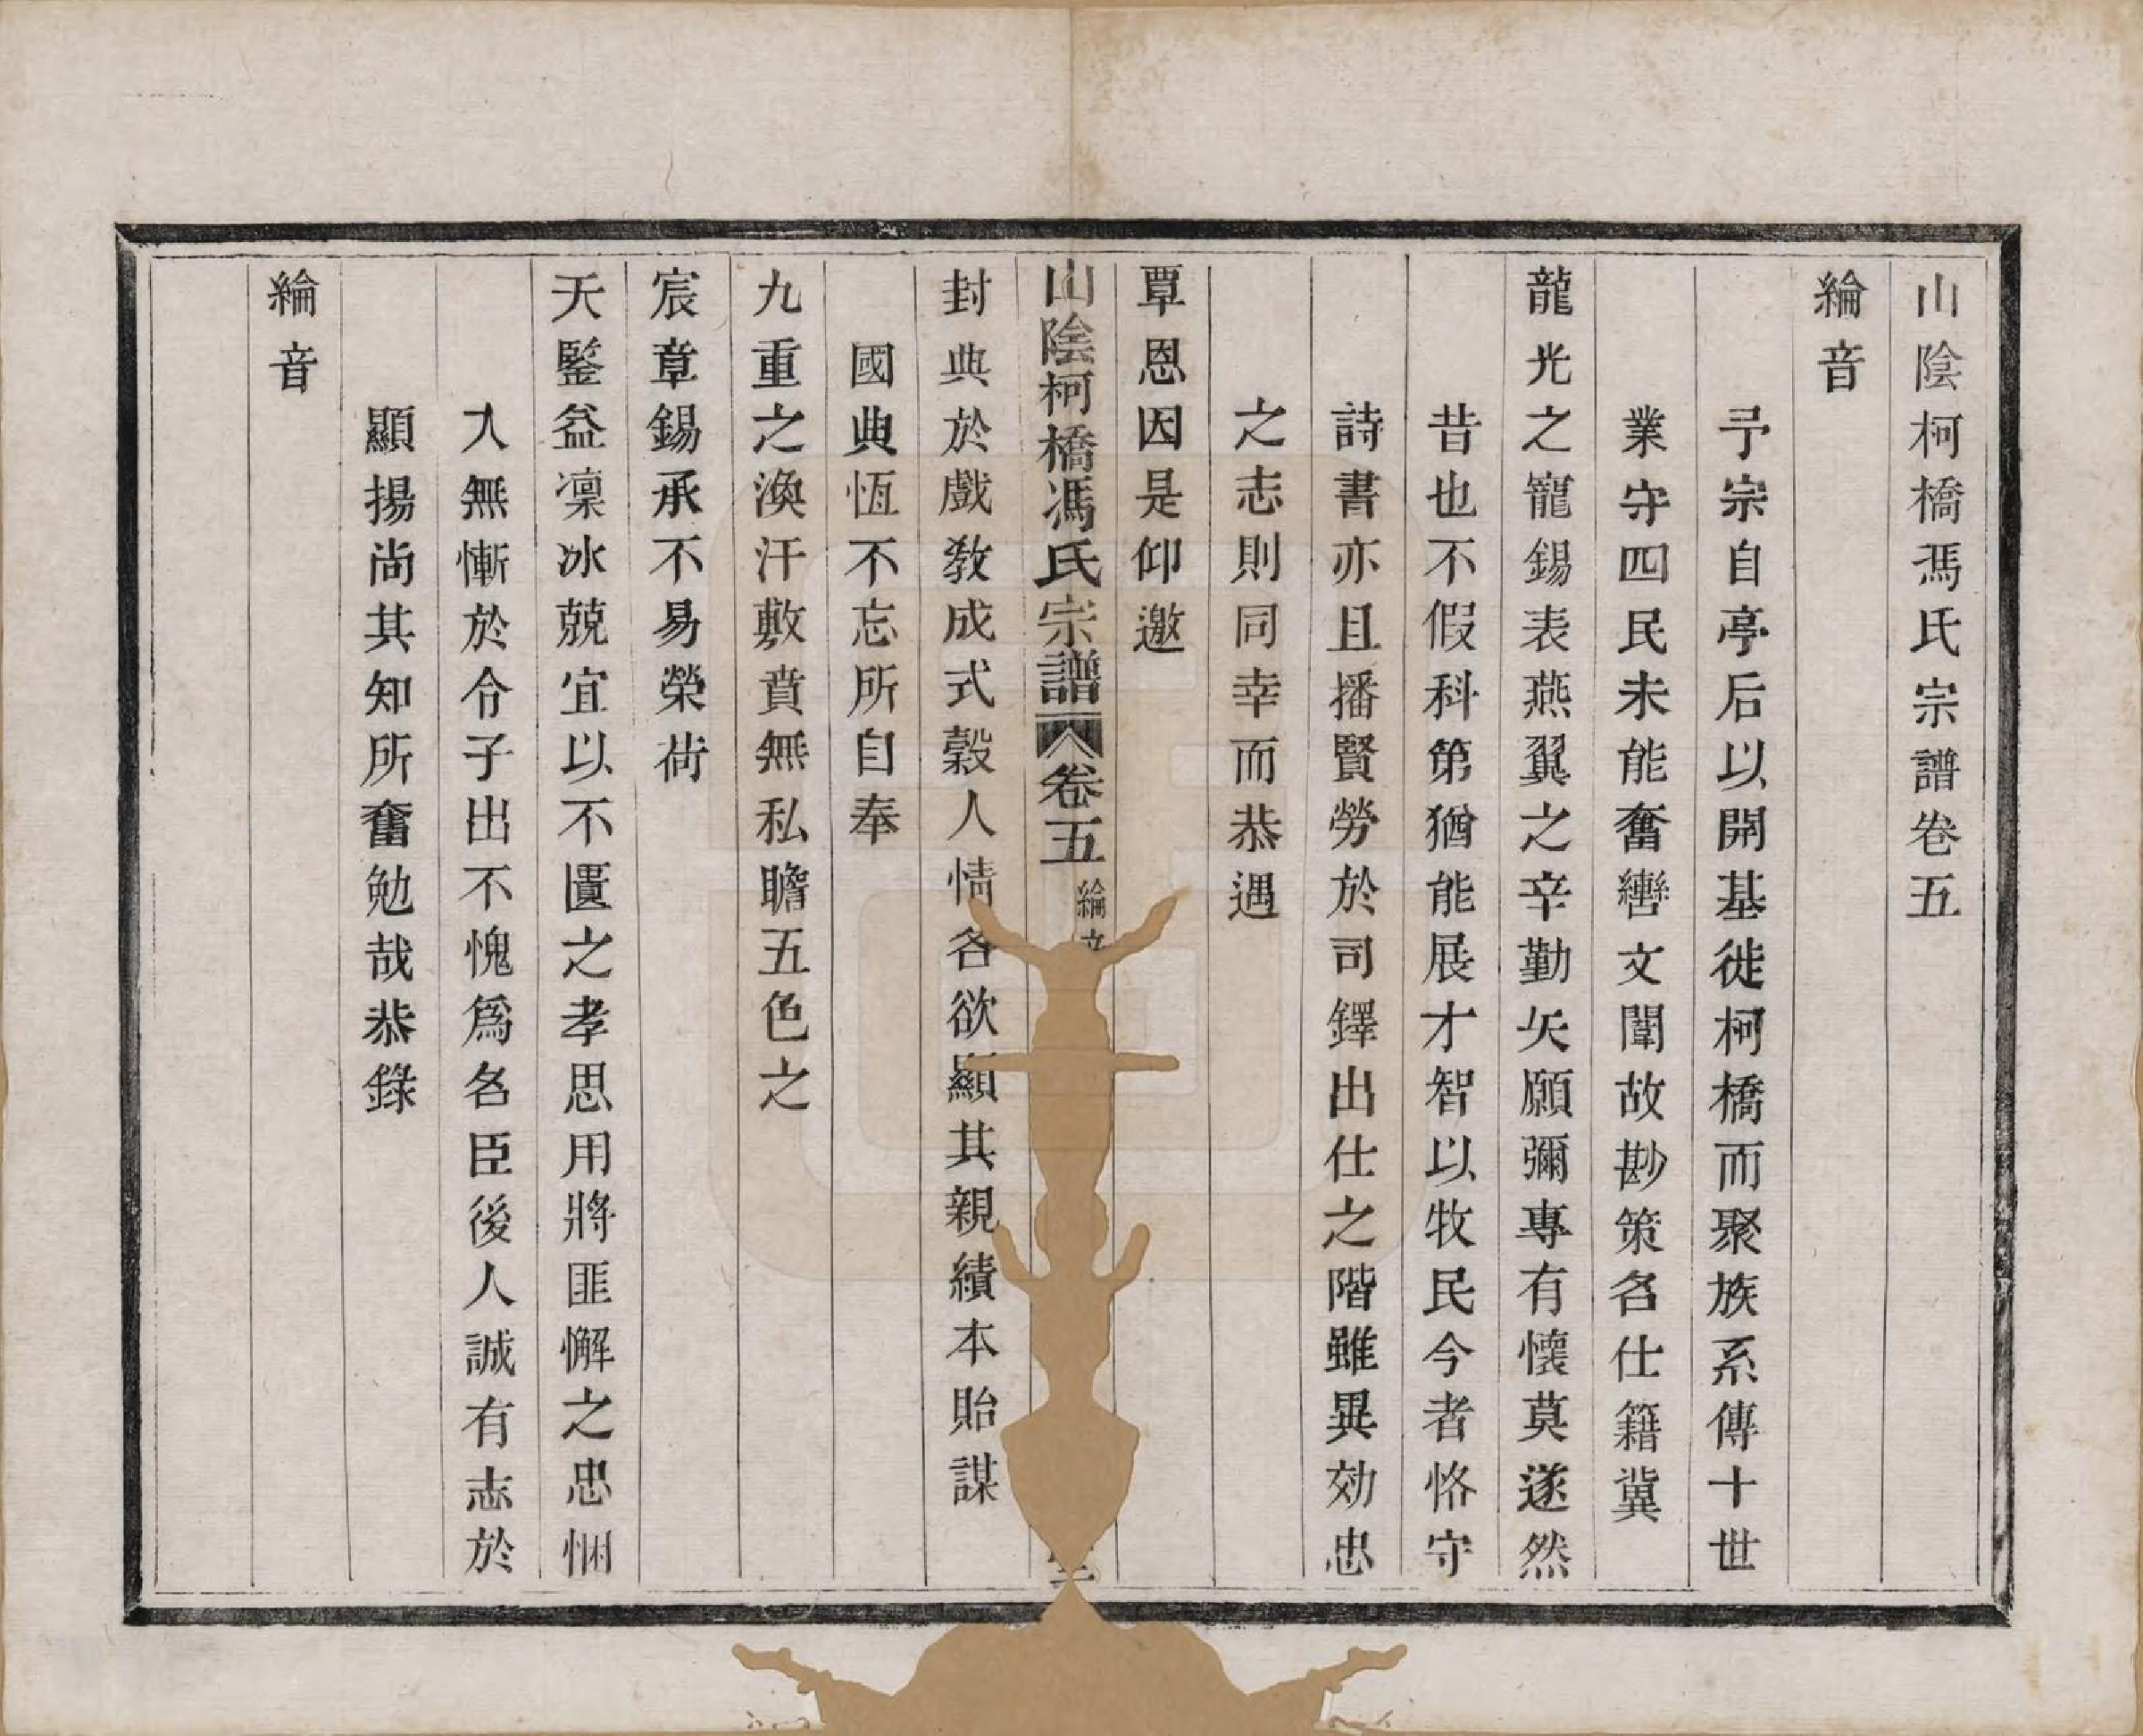 山陰柯橋馮氏宗譜卷五
綸音
予宗自亭后以開基徙柯橋而聚族系傳十世
業守四民未能奮轡文闈故尠策名仕籍冀
龍光之寵錫表燕翼之辛勤矢願彌專有懷莫遂然
昔也不假科第猶能展才智以牧民今者恪守
詩書亦且播賢勞於司鐸出仕之階雖異効忠
之志則同幸而恭遇
覃恩因是仰邀
山陰柯橋馮氏宗譜 卷五 綸音
封典於戲敎成式穀人情各欲顯其親績本貽謀
國典恆不忘所自奉
九重之渙汗敷賁無私瞻五色之
宸章錫承不易榮荷
天鑒益凜冰兢宜以不匱之孝思用將匪懈之忠悃
入無慚於令子出不愧爲名臣後人誠有志於
顯揚尚其知所奮勉哉恭錄
綸音